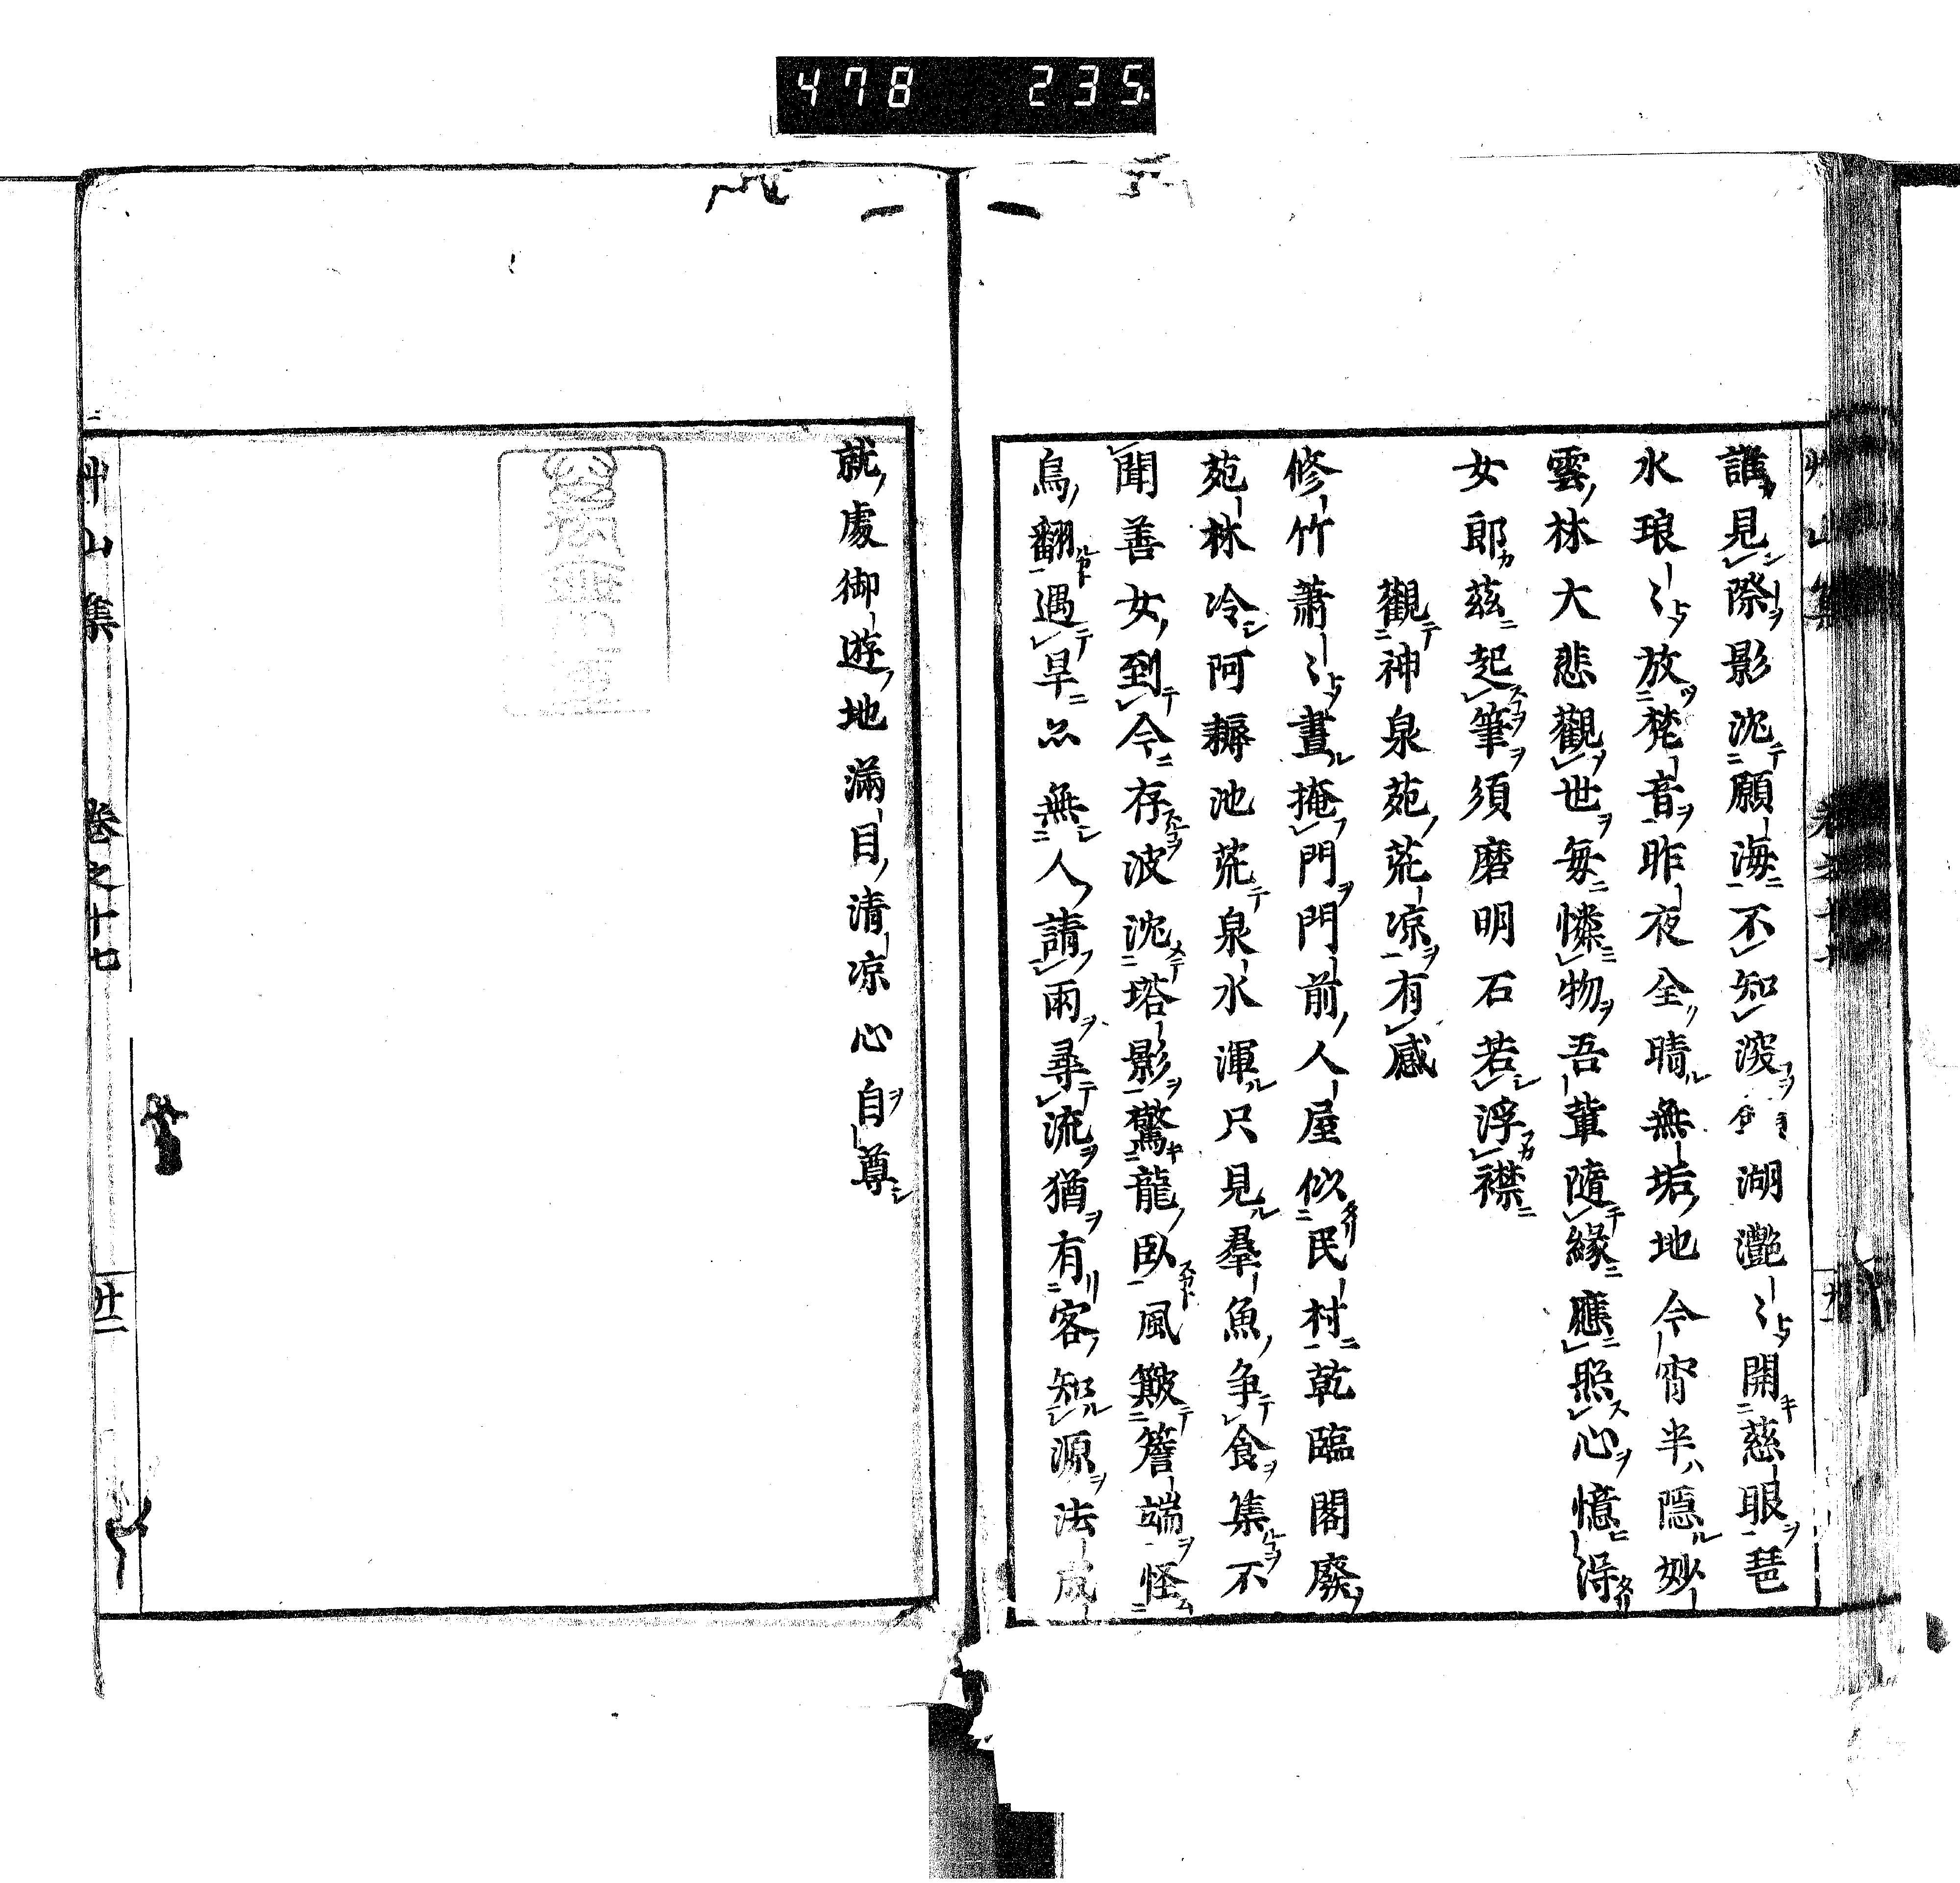 478 235
誰見際影沈願海不知湥湖灔〻開慈眼琶
水琅〻放梵音昨夜全晴無垢地今宵半隱妙
雲林大悲觀世每憐物吾輩隨緣應照心憶得
女郎茲起筆須磨明石若浮襟
觀神泉苑荒凉有感
修竹蕭〻晝掩門門前人屋似民村乾臨閣廢
苑林冷阿耨池荒泉水渾只見羣魚争食集不
聞善女到今存波沈塔影驚龍臥風簸簷端怪
鳥翻遇旱亦無人請雨尋流猶有客知源法成
就處御遊地滿目清凉心自尊
艸山集 卷之十七 廿二